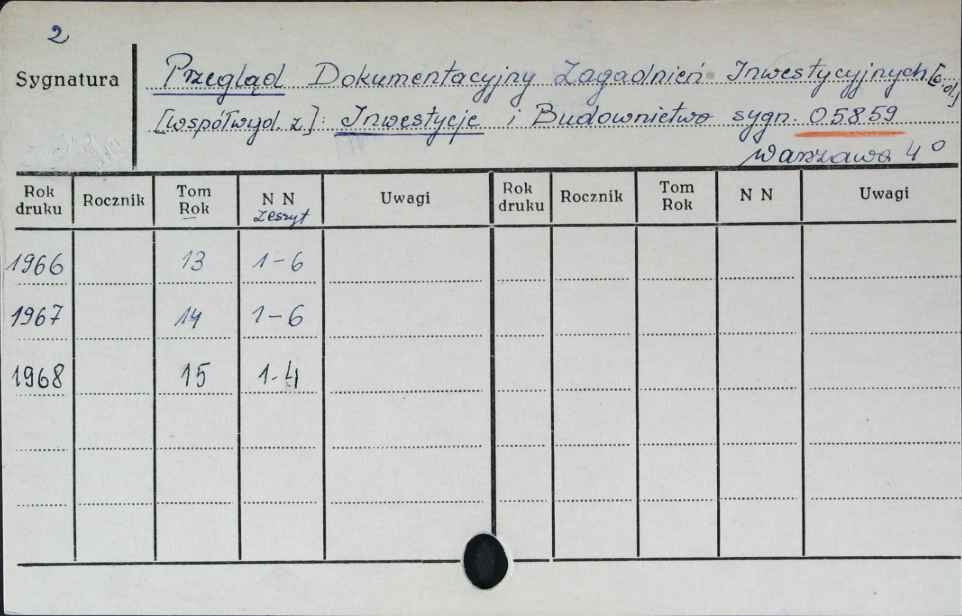 2
Sygnatura
Przegląd Dokumentacyjny Zagadnień Inwestycyjnych [c.d.]
[współwyd. z]: Inwestycje i Budownictwo sygn. 05859
Warszawa 4°
Rok druku Rocznik Tom Rok N N zeszyt Uwagi Rok druku Rocznik Tom Rok N N Uwagi
1966 13 1-6
1967 14 1-6
1968 15 1-4